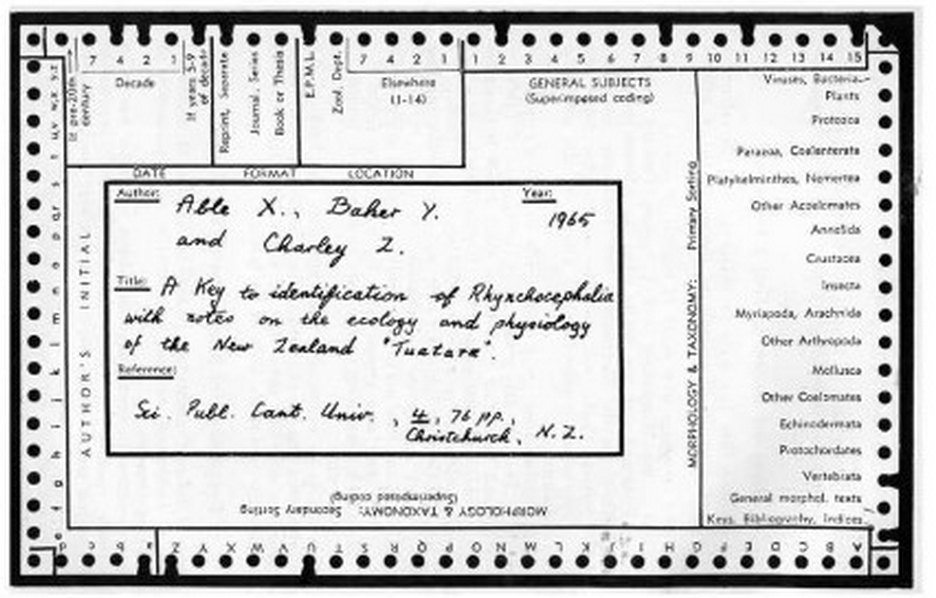 7 4 2 1 7 4 2 1 1 2 3 4 5 6 7 8 9 10 11 12 13 14 15
If pre-20th century
Decade
If years 5-9 of decade
Reprint, Separate
Journal, Series
Book or Thesis
E.P.M.L.
Zool. Dept.
Elsewhere
(1-14)
GENERAL SUBJECTS
(Superimposed coding)
DATE FORMAT LOCATION
AUTHOR'S INITIAL
Author: Able X., Baker Y. Year: 1965
and Charley Z.
Title: A Key to identification of Rhynchocephalia
with notes on the ecology and physiology
of the New Zealand "Tuatara".
Reference:
Sci. Publ. Cant. Univ., 4, 76 pp.,
Christchurch, N.Z.
MORPHOLOGY & TAXONOMY: Primary Sorting
Viruses, Bacteria
Plants
Protozoa
Parazoa, Coelenterata
Platyhelminthes, Nemertea
Other Acoelomates
Annelida
Crustacea
Insecta
Myriapoda, Arachnida
Other Arthropoda
Mollusca
Other Coelomates
Echinodermata
Protochordates
Vertebrata
General morphol. texts
Keys, Bibliography, Indices
MORPHOLOGY & TAXONOMY: Secondary Sorting
(Superimposed coding)
A B C D E F G H I J K L M N O P Q R S T U V W X Y Z a b c d